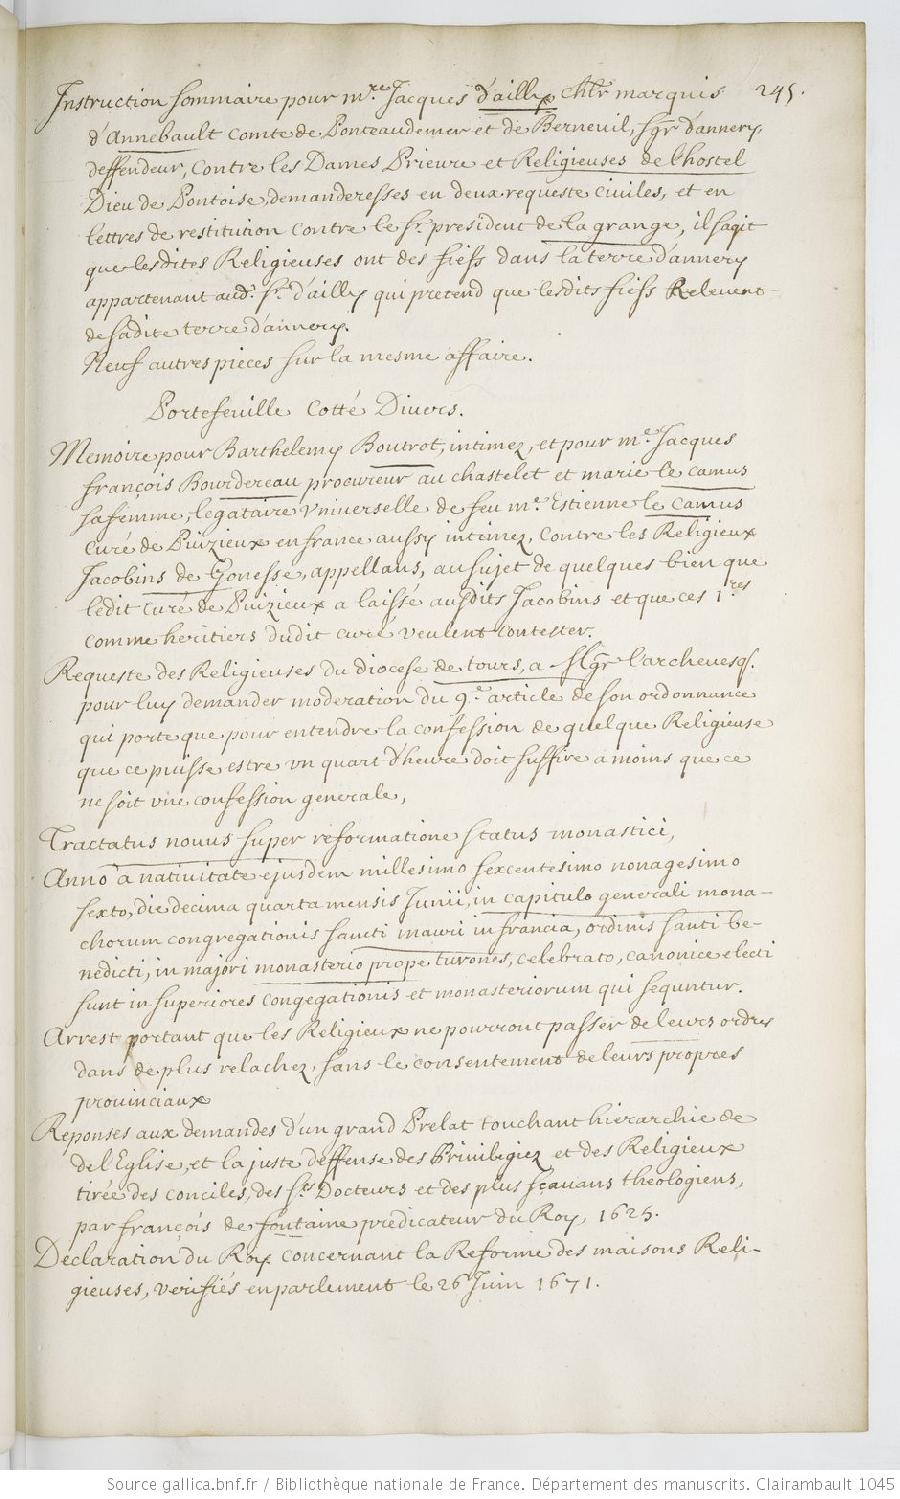 Instruction sommaire pour m.re Jacques d'ailly chlr marquis 245.
d'Annebault comte de Ponteaudemer et de Berneuil, sgr d'annery,
deffendeur, contre les Dames Prieure et Religieuses de l'hostel
Dieu de Pontoise, demanderesses en deux requeste civiles, et en
lettres de restitution contre le sr. president de la grange, il sagit
que lesdites Religieuses ont des fiefs dans la terre d'annery
appartenant aud. sr. d'ailly qui pretend que lesdits fiefs Relevent
de sadite terre d'annery.
Neuf autres pieces sur la mesme affaire.
Portefeuille cotté Divers.
Memoire pour Barthelemy Boutrot, intimez, et pour m.e Jacques
françois Bourdereau procureur au chastelet et marie le camus
sa femme, legataire vniverselle de feu m.e Estienne le camus
curé de Puizieux en france aussy intimez, contre les Religieux
Jacobins de Gonesse, appellans, au sujet de quelques bien que
ledit curé de Puizieux a laissé ausdits Jacobins et que ces 1.res
comme heritiers dudit curé veulent contester.
Requeste des Religieuses du diocese de tours, a Msgr l'archevesq.
pour luy demander moderation du 9.e article de son ordonnance
qui porte que pour entendre la confession de quelque Religieuse
que ce puisse estre vn quart d'heure doit suffire a moins que ce
ne soit vne confession generale,
Tractatus novus super reformatione status monastici,
Anno a nativitate ejusdem millesimo sexcentesimo nonagesimo
sexto, die decima quarta mensis Junii, in capitulo generali mona-
chorum congregationis sancti mauri in francia, ordinis santi be-
nedicti, in majori monasterio prope turones, celebrato, canonice electi
sunt in superiores congegationis et monasteriorum qui sequntur.
Arrest portant que les Religieux ne pourront passer de leurs ordres
dans de plus relachez, sans le consentement de leurs propres
provinciaux
Réponses aux demandes d'un grand Prelat touchant hierarchie de
de l'Eglise, et la juste deffense des Privilegiez et des Religieux
tirée des conciles, des sts Docteurs et des plus sçavans theologiens,
par françois de fontaine predicateur du Roy, 1625.
Déclaration du Roy concernant la Reforme des maisons Reli-
gieuses, verifiés en parlement le 26 Juin 1671.
Source gallica.bnf.fr / Bibliothèque nationale de France. Département des manuscrits. Clairambault 1045